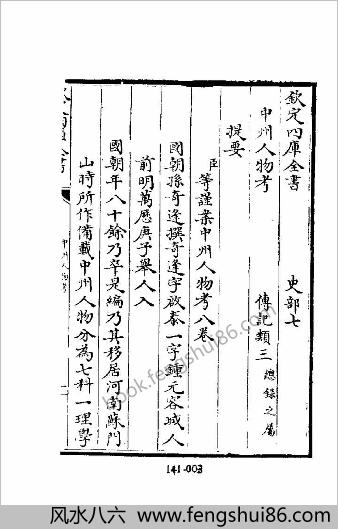 欽定四庫全書　史部七
中州人物考　傳記類三總錄之屬
提要
臣等謹案中州人物考八卷
國朝孫奇逢撰奇逢字啟泰一字鍾元容城人
前明萬歷庚子舉人入
國朝年八十餘乃卒是編乃其移居河南蘇門
山時所作備載中州人物分為七科一理學
中州人物考
141-003
book.fengshui86.com
风水八六 www.fengshui86.com